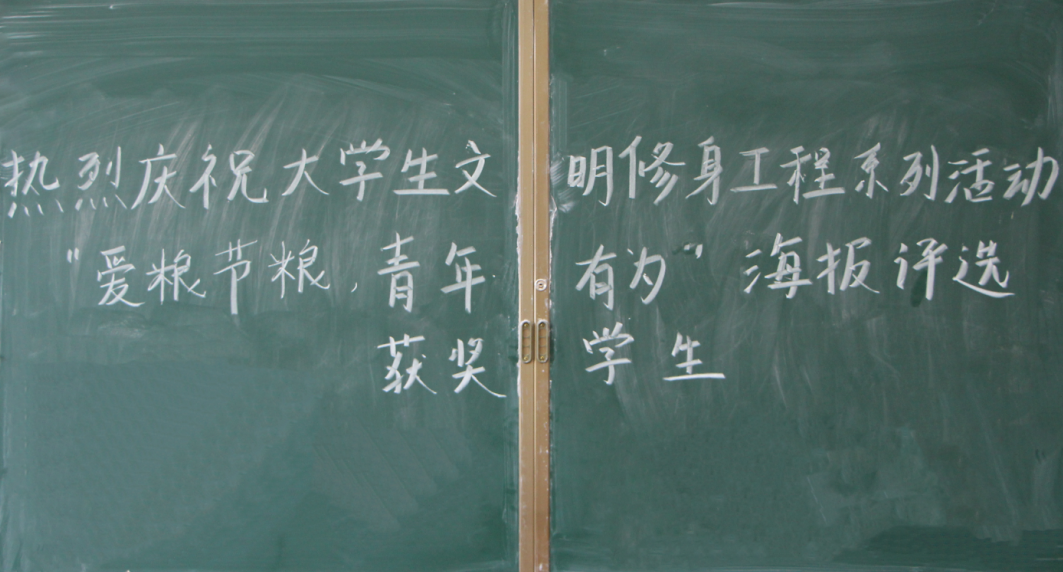 热烈庆祝大学生文明修身工程系列活动
“爱粮节粮，青年有为”海报评选
获奖学生